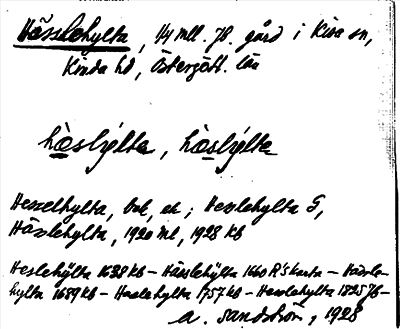 Hässlehylta, 1/4 mtl. 78. gård i Kisa sn,
Kinda hd, Östergötl. län
hæslýlta, hæslýlta
Hesselhylta, bok, ek; Hesslehylta G,
Hässlehylta, 1920 ml, 1928 kb
Heslehÿlta 1638 kb – Hässlehÿlta 1660 R's karta – Hässle-
hylta 1689 kb – Haslehylta 1757 kb – Hesslehylta 1825 Jb –
A. Sandström, 1928